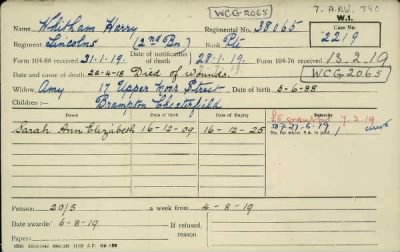 WCG-2065
7. A.P.W. 790
W.1.
Name Whitham Harry Regimental No. 38065 Case No. 2219
Regiment Lincolns (2nd Bn) Rank Pte
Form 104-88 received 31-1-19. Date of notification of death 28-1-19. Form 104-76 received 13-2-19
WCG-2065
Date and cause of death 22-4-18 Died of Wounds
Widow, Amy 17 Upper Moor Street Date of birth 5-6-88
Children:— Brampton Chesterfield
Date of Birth Date of Expiry Remarks
Sarah Ann Elizabeth 16-12-09 16-12-25
7.2.19
Pension 20/5 a week from 4-8-19
Date awarded 6-8-19
Papers